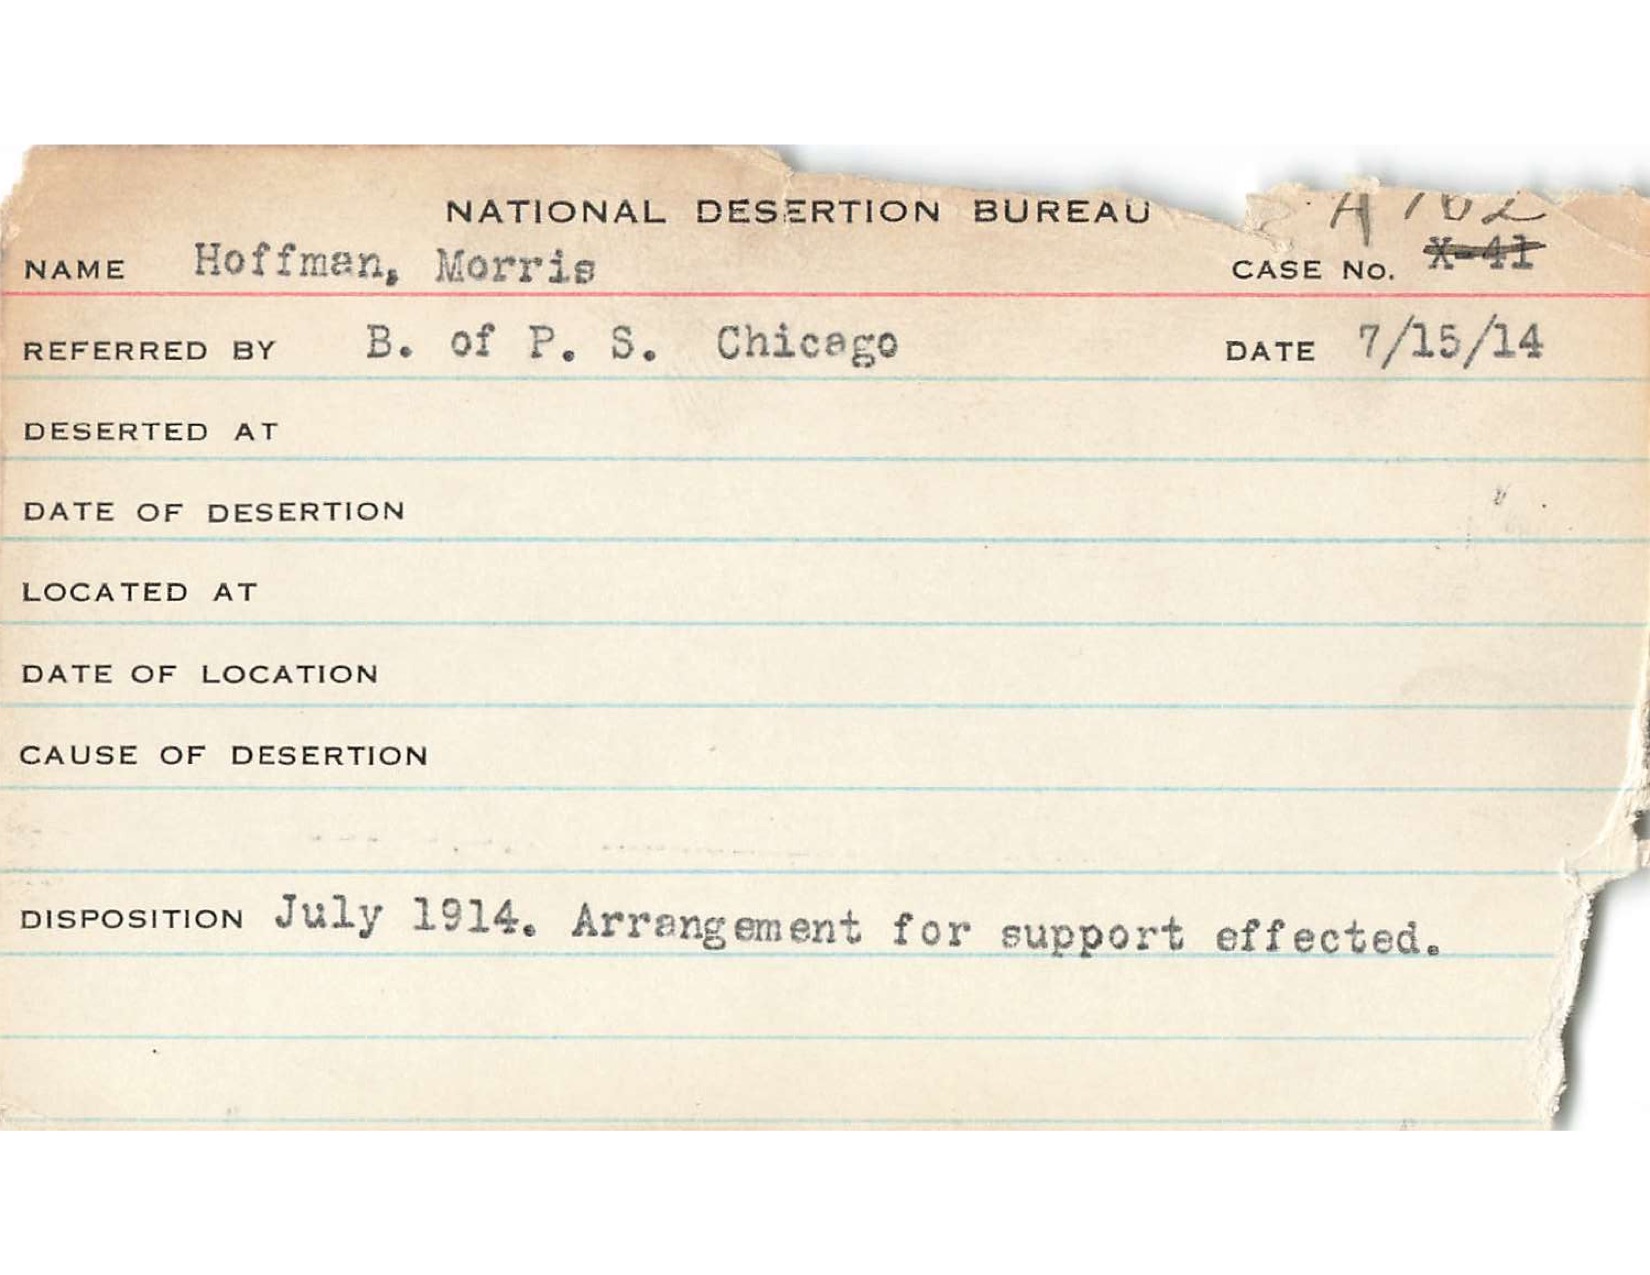 NATIONAL DESERTION BUREAU
NAME Hoffman, Morris CASE No. X-41
REFERRED BY B. of P. S. Chicago DATE 7/15/14
DESERTED AT
DATE OF DESERTION
LOCATED AT
DATE OF LOCATION
CAUSE OF DESERTION
DISPOSITION July 1914. Arrangement for support effected.